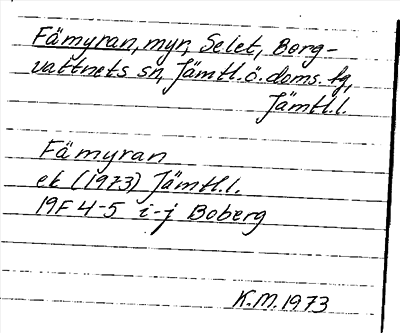 Fämyran, myr, Selet, Borg-
vattnets sn, Jämtl. ö. doms. tg,
Jämtl.l.
Fämyran
ek (1973) Jämtl.l.
19F 4-5 i-j Boberg
K.M. 1973